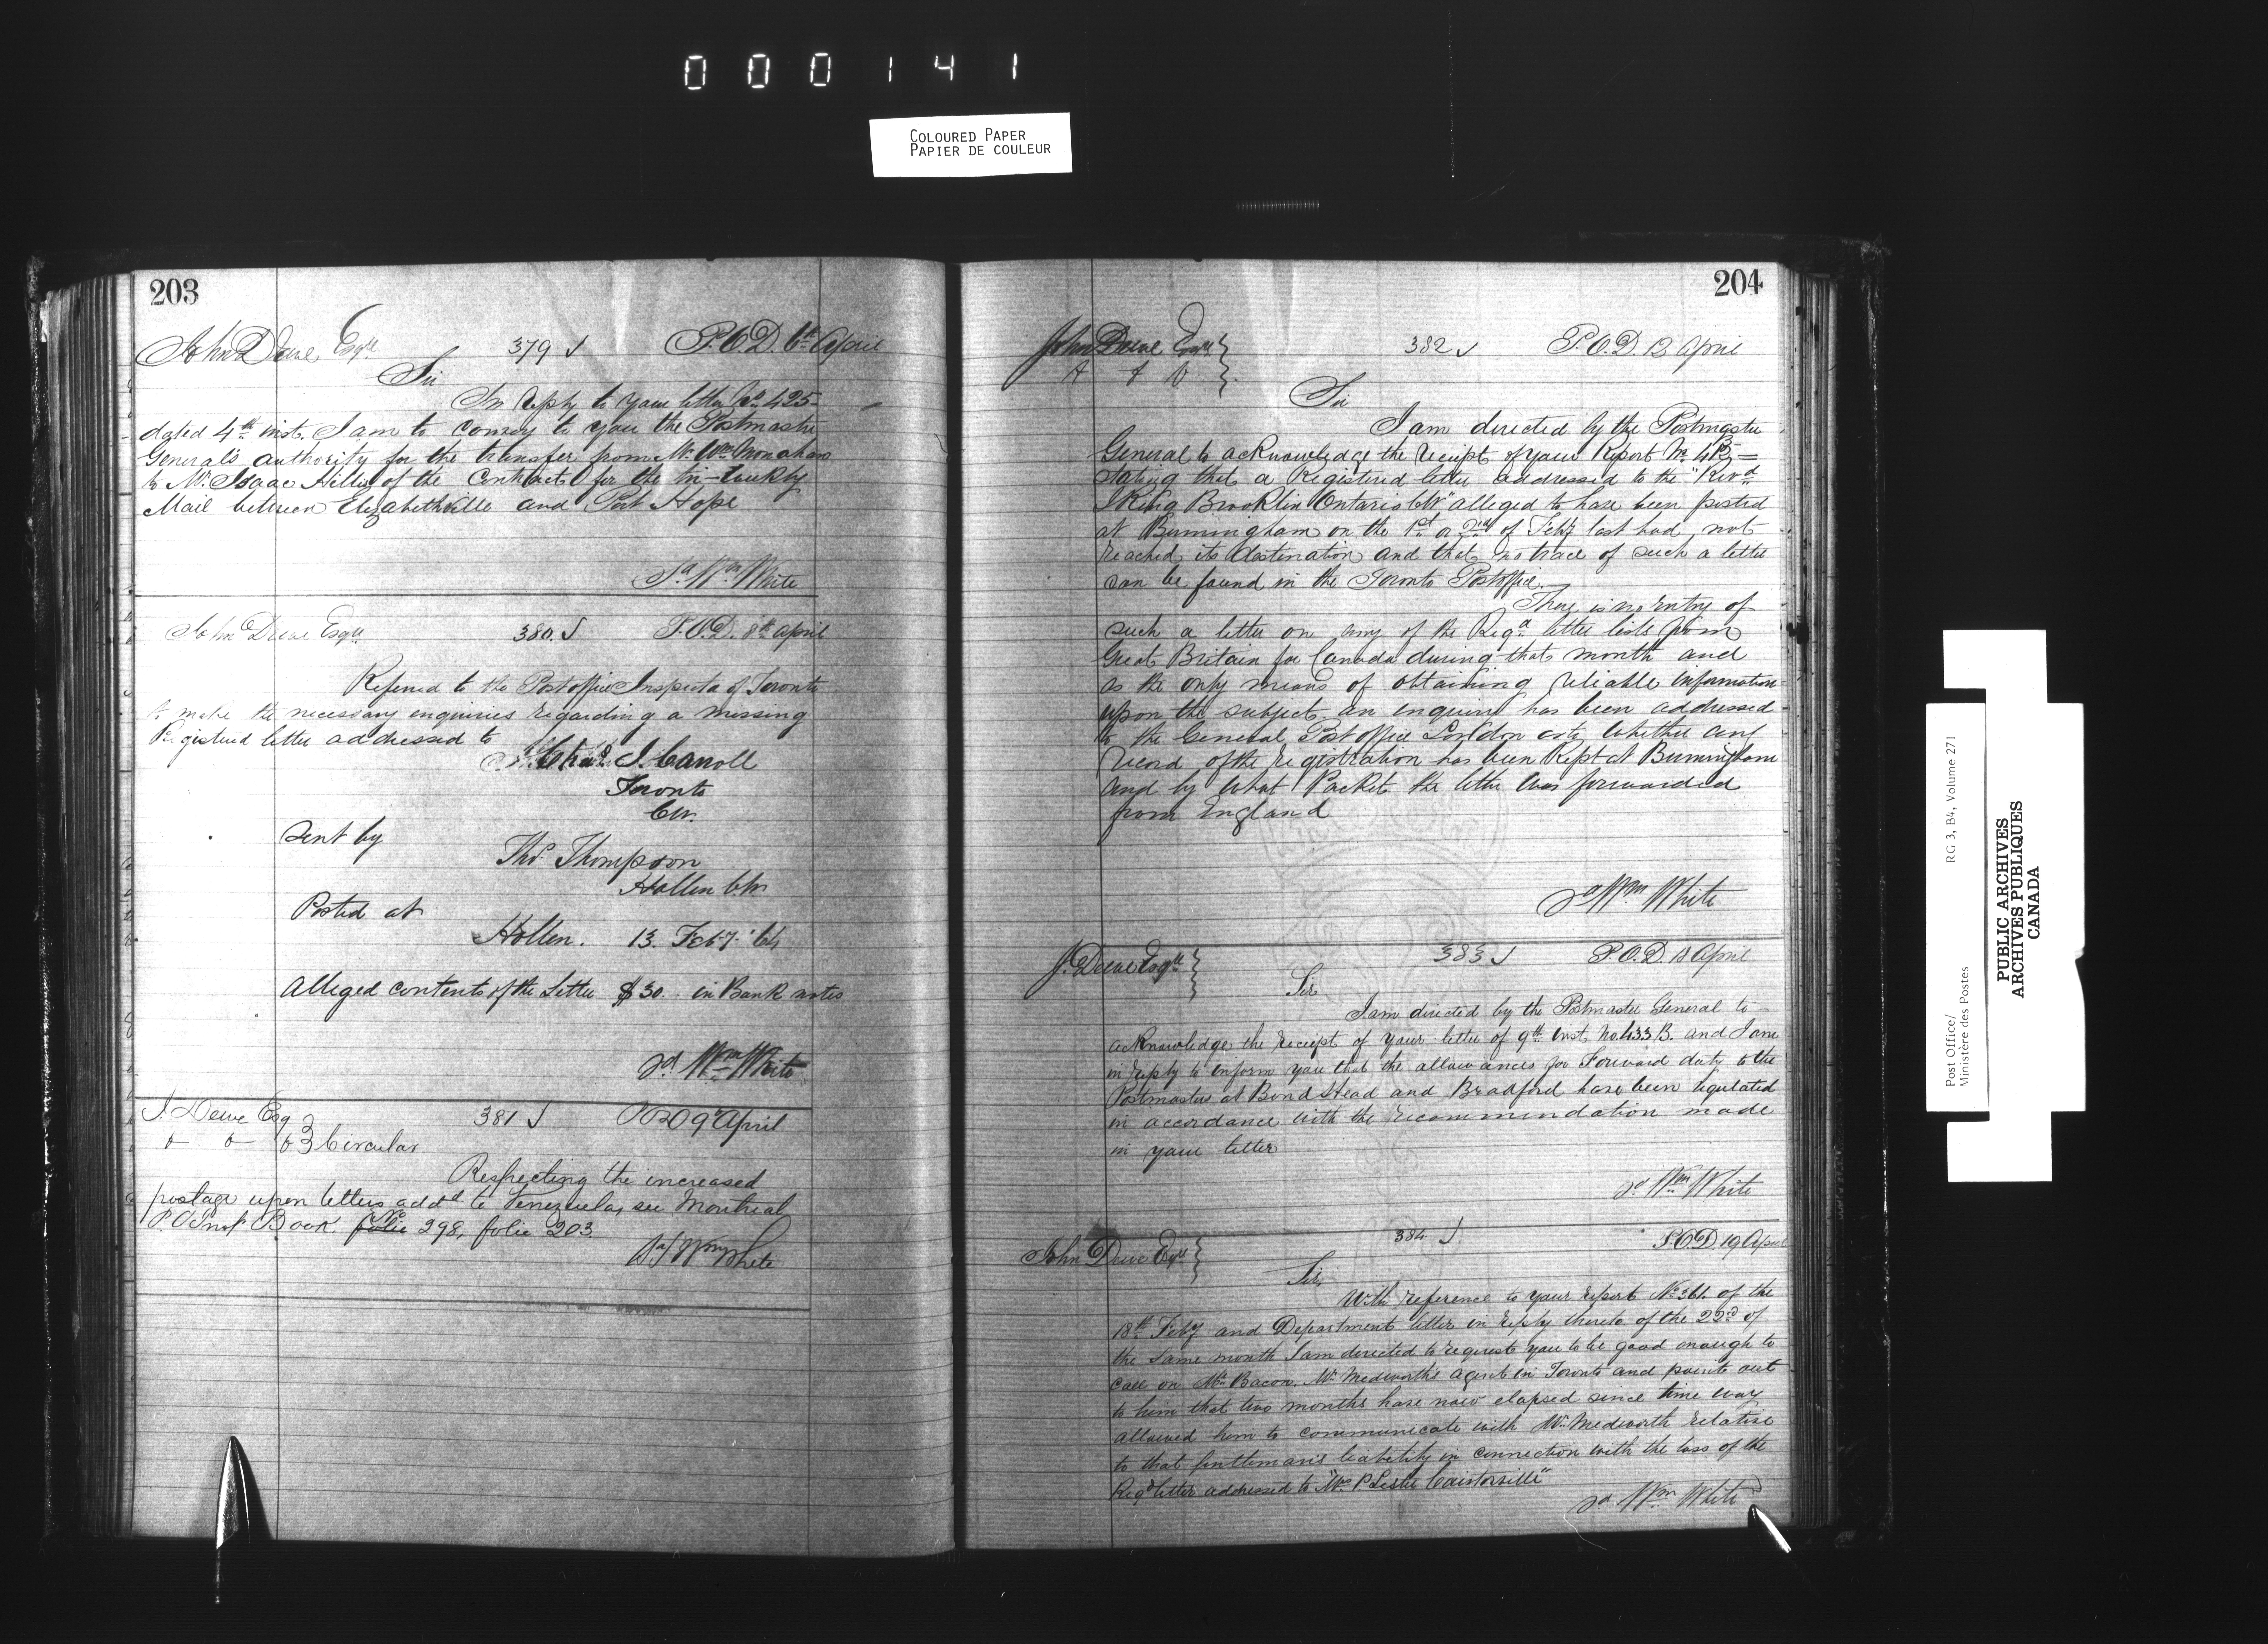 000141
COLOURED PAPER
PAPIER DE COULEUR
203
John Dewe Esqre 379 P.O.D. 6th April
Sir
In reply to your letter No. 425
dated 4th inst. I am to convey to you the Postmaster
General's authority for the transfer from Mr. Wm. Monahan
to Mr. Isaac Hills of the Contract for the tri-weekly
Mail between Elizabethville and Port Hope
Sd Wm White
John Dewe Esqre 380. P.O.D. 8th April
Referred to the Post office Inspector of Toronto
to make the necessary enquiries regarding a missing
Registered letter addressed to
J. Carroll
Toronto
C.W.
Sent by
Thos. Thompson
Hollen C.W.
Posted at
Hollen. 13. Feby. '64
Alleged contents of the Letter $30. in Bank notes
Sd. Wm White
J. Dewe Esq 381 POD 9 April
Circular
Respecting the increased
postage upon letters addd to Venezuela, see Montreal
P.O Insp Book folio No 298, folio 203
Sd/ Wm White
204
John Dewe Esqre 382 P.O.D. 12 April
Sir
I am directed by the Postmaster
General to acknowledge the receipt of your Report No.
stating that a Registered letter addressed to the "Revd
King Brooklin Ontario CW" alleged to have been posted
at Burmingham on the 1st or 2nd of Feby last had not
reached its destination and that no trace of such a letter
can be found in the Toronto Postoffice.
There is no entry of
such a letter on any of the Regd letter lists from
Great Britain for Canada during that month and
as the only means of obtaining reliable information
upon the subject an enquiry has been addressed
to the General Post office London as to whether any
record of the registration has been kept at Burmingham
and by what Packet the letter was forwarded
from England
Sd Wm White
J. Dewe Esqre 383 P.O.D. April
Sir
I am directed by the Postmaster General to
acknowledge the receipt of your letter of 9th inst No. 433 B. and I am
in reply to inform you that the allowances for Forward duty to the
Postmasters at Bond Head and Bradford have been regulated
in accordance with the recommendation made
in your letter
Sd Wm White
John Dewe Esqre 384 P.O.D. 19 April
Sir,
With reference to your report No 361. of the
18th Feby and Department letter in reply thereto of the 22nd of
the same month I am directed to request you to be good enough to
call on Mr Bacon. Mr Medworth's agent in Toronto and point out
to him that two months have now elapsed since time was
allowed him to communicate with Mr Medworth relative
to that gentleman's liability in connection with the loss of the
Regd letter addressed to "Mrs P Lester Caistorville"
Sd Wm White
Post Office/ RG 3, B4, Volume 271
Ministère des Postes
PUBLIC ARCHIVES
ARCHIVES PUBLIQUES
CANADA